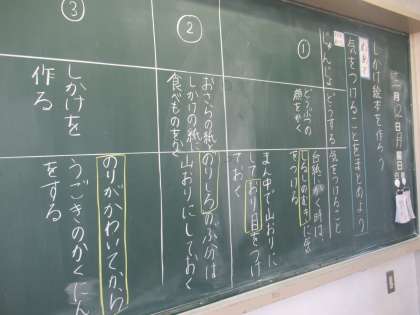 月
日
曜日
しかけ絵本を作ろう
めあて
気をつけることをまとめよう
じゅんじょ
どうする
気をつけること
①
どうぶつの
顔をかく
台紙にかく時は、
しるしのむきに気
をつける
まん中で山おりに
しており目をつけ
ておく
②
おさらの紙に
しかけの紙に
食べものをかく
のりしろのぶ分は
山おりにしておく
③
しかけを
作る
のりがかわいてから
うごきのかくにん
をする